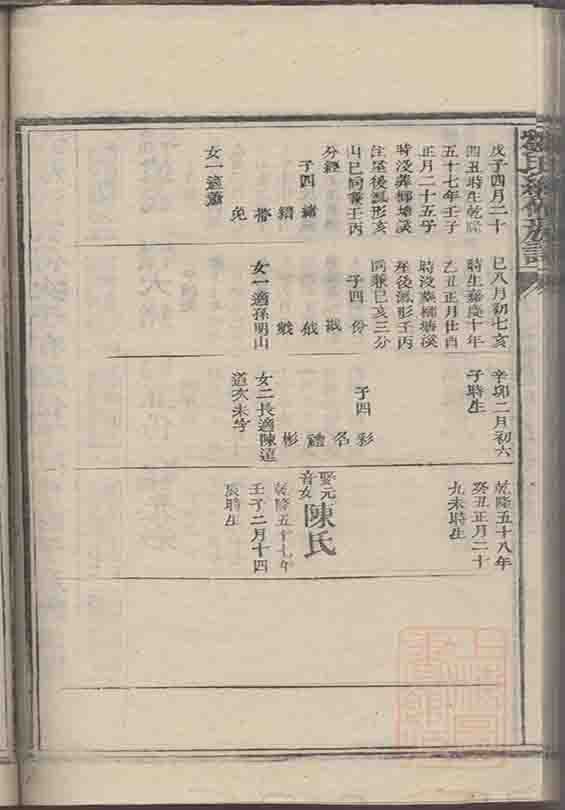 劉氏續修族譜
戊子四月二十
四丑時生乾隆
五十七年壬子
正月二十五子
時沒葬柳塘漢
注屋後鳳形亥
山巳向兼壬丙
分經
子四 緒
縉
女一適蕭
巳八月初七亥
時生嘉慶十年
乙丑正月廿酉
時沒葬柳塘漢
屋後鳳形壬丙
向兼巳亥三分
子四 份
女一適孫明山
辛卯二月初六
子時生
子四 彩
名
禮
彬
女二長適陳遠
道次未字
乾隆五十八年
癸丑正月二十
九未時生
娶元
音女
陳氏
乾隆五十七年
壬子二月十四
辰時生
上海圖
書館藏